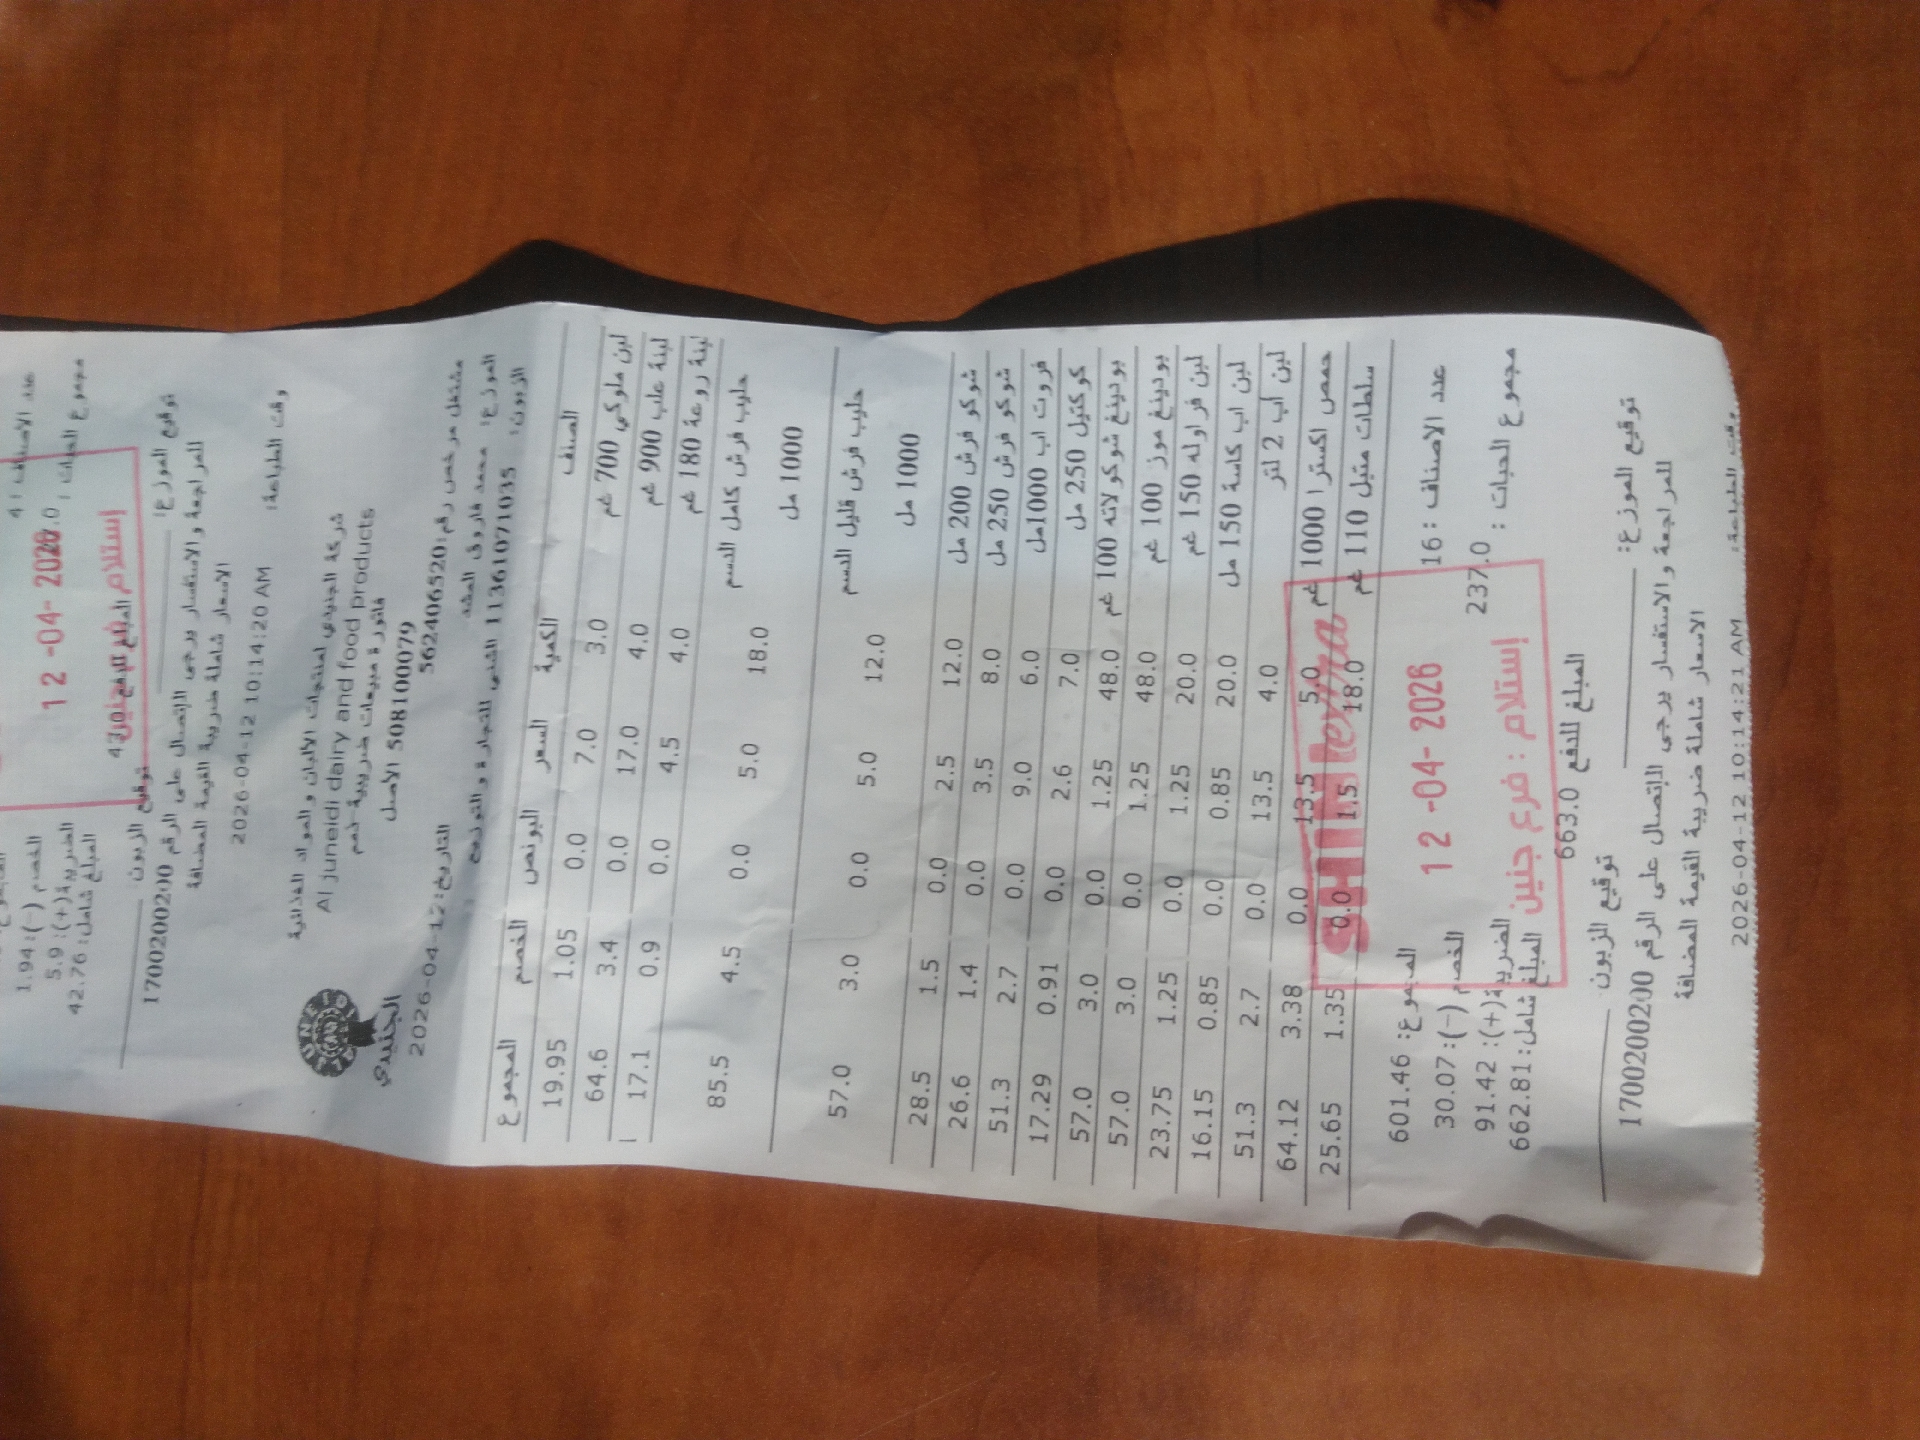 عدد الاصناف : 4
مجموع الحبات :
12 -04- 2026
الخصم (-): 1.94
الضريبة(+): 5.9
المبلغ شامل: 42.76
المبلغ للدفع 43.0
توقيع الموزع:
توقيع الزبون
للمراجعة والاستفسار يرجى الاتصال على الرقم 1700200200
الاسعار شاملة ضريبة القيمة المضافة
وقت الطباعة: 2026-04-12 10:14:20 AM
شركة الجنيدي لمنتجات الالبان والمواد الغذائية
Al juneidi dairy and food products
فاتورة مبيعات ضريبية
508100079 الاصل
الجنيدي
مشتغل مرخص رقم:562406520
التاريخ:2026-04-12
الموزع: محمد فاروق
الزبون: 11361071035 الشني للتجارة والتوزيع
الصنف الكمية السعر البونص الخصم المجموع
لبن ملوكي 700 غم 3.0 7.0 0.0 1.05 19.95
لبنة علب 900 غم 4.0 17.0 0.0 3.4 64.6
لبنة روعة 180 غم 4.0 4.5 0.0 0.9 17.1
حليب فرش كامل الدسم 18.0 5.0 0.0 4.5 85.5
1000 مل
حليب فرش قليل الدسم 12.0 5.0 0.0 3.0 57.0
1000 مل
شوكو فرش 200 مل 12.0 2.5 0.0 1.5 28.5
شوكو فرش 250 مل 8.0 3.5 0.0 1.4 26.6
فروت اب 1000مل 6.0 9.0 0.0 2.7 51.3
كوكتيل 250 مل 7.0 2.6 0.0 0.91 17.29
بودينغ شوكولاته 100 غم 48.0 1.25 0.0 3.0 57.0
بودينغ موز 100 غم 48.0 1.25 0.0 3.0 57.0
لبن فراوله 150 غم 20.0 1.25 0.0 1.25 23.75
لبن اب كاسة 150 مل 20.0 0.85 0.0 0.85 16.15
لبن أب 2 لتر 4.0 13.5 0.0 2.7 51.3
حمص اكسترا 1000 غم 5.0 13.5 0.0 3.38 64.12
سلطات متبل 110 غم 18.0 1.5 0.0 1.35 25.65
عدد الاصناف : 16
المجموع: 601.46
12 -04- 2026
الخصم (-): 30.07
مجموع الحبات : 237.0
الضريبة(+): 91.42
إستلام : فرع جنين
المبلغ شامل: 662.81
المبلغ للدفع 663.0
توقيع الموزع:
توقيع الزبون
للمراجعة والاستفسار يرجى الاتصال على الرقم 1700200200
الاسعار شاملة ضريبة القيمة المضافة
وقت الطباعة: 2026-04-12 10:14:21 AM